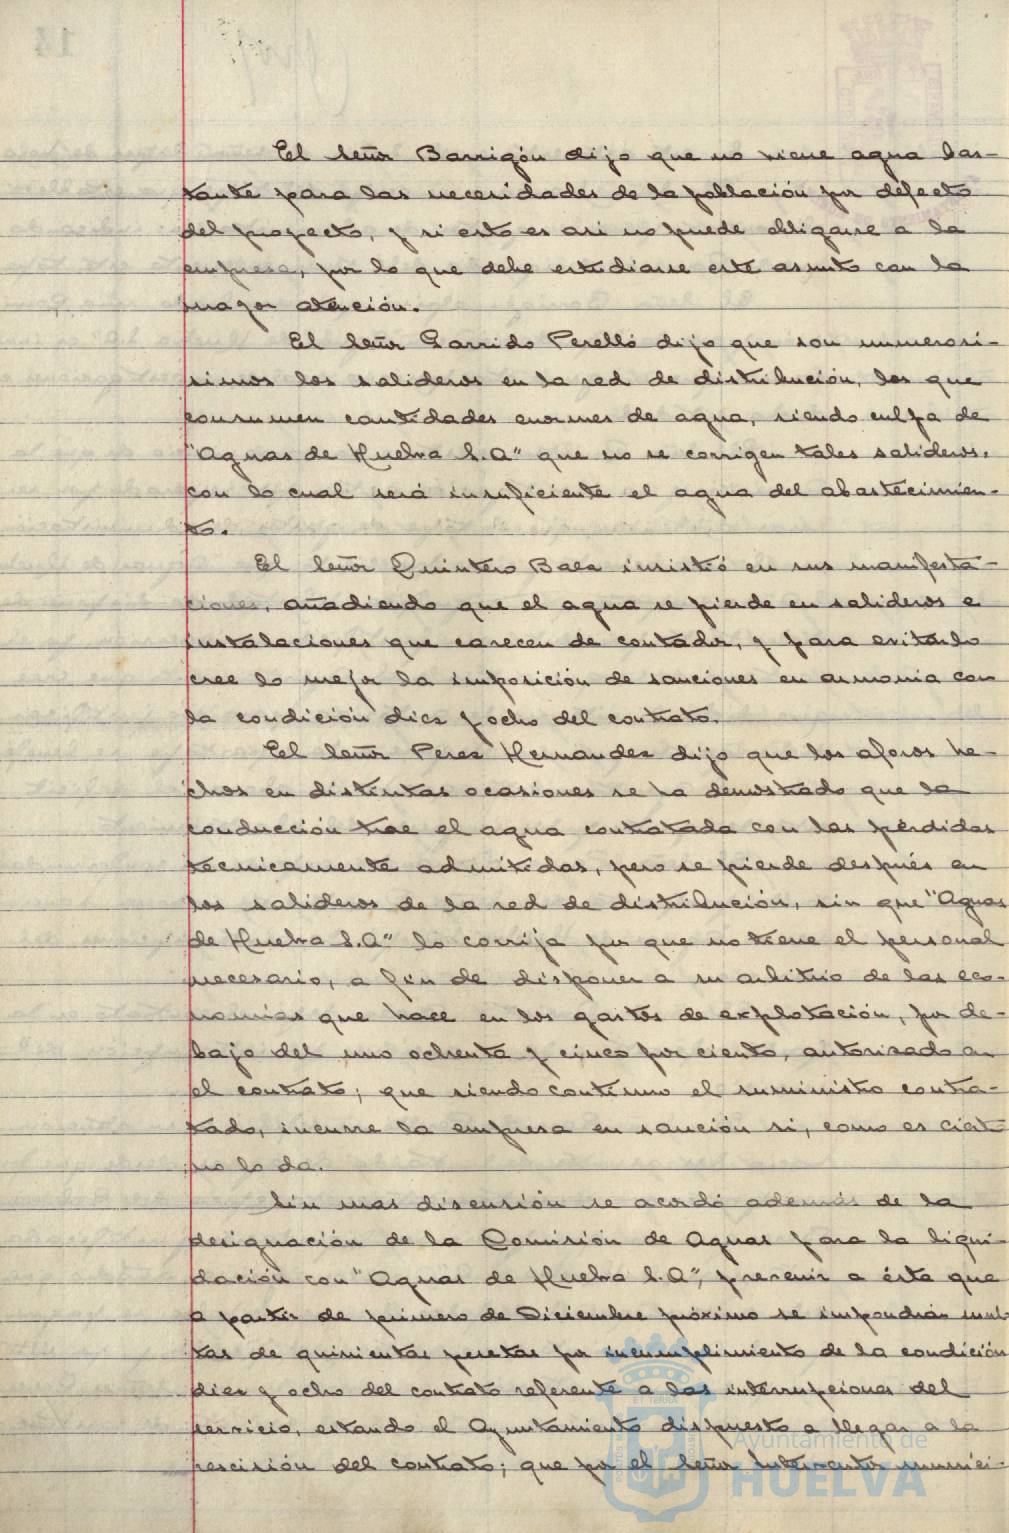 El Señor Barrigón dijo que no viene agua bas-
tante para las necesidades de la población por defecto
del proyecto, y si esto es asi no puede obligarse a la
empresa, por lo que debe estudiarse este asunto con la
mayor atención.
El Señor Garrido Perelló dijo que son numerosi-
simos los salideros en la red de distribución, los que
consumen cantidades enormes de agua, siendo culpa de
"Aguas de Huelva S.A" que no se corrigen tales salideros,
con lo cual será insuficiente el agua del abastecimien-
to.
El Señor Quintero Baea insistió en sus manifesta-
ciones, añadiendo que el agua se pierde en salideros e
instalaciones que carecen de contador, y para evitarlo
cree lo mejor la imposición de sanciones en armonia con
la condición diez y ocho del contrato.
El Señor Perez Hernandez dijo que los aforos he-
chos en distintas ocasiones se ha demostrado que la
conducción trae el agua contratada con las pérdidas
tecnicamente admitidas, pero se pierde después en
los salideros de la red de distribución, sin que "Aguas
de Huelva S.A" lo corrija por que no tiene el personal
necesario, a fin de disponer a su arbitrio de las eco-
nomias que hace en los gastos de explotación, por de-
bajo del uno ochenta y cinco por ciento, autorizado en
el contrato; que siendo contínuo el suministro contra-
tado, incurre la empresa en sanción si, como es cierto
no lo da.
Sin mas discusión se acordó además de la
designación de la Comisión de Aguas para la liqui-
dación con "Aguas de Huelva S.A", prevenir a ésta que
a partir de primero de Diciembre próximo se impondrán mul-
tas de quinientas pesetas por incumplimiento de la condición
diez y ocho del contrato referente a las interrupciones del
servicio, estando el Ayuntamiento dispuesto a llegar a la
rescisión del contrato; que por el Señor Interventor munici-
Ayuntamiento de
HUELVA